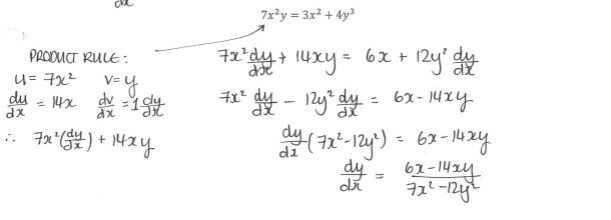 dx
7x²y = 3x² + 4y³
PRODUCT RULE:
u = 7x² v = y
du/dx = 14x dv/dx = 1 dy/dx
∴ 7x²(dy/dx) + 14xy
7x² dy/dx + 14xy = 6x + 12y² dy/dx
7x² dy/dx - 12y² dy/dx = 6x - 14xy
dy/dx (7x² - 12y²) = 6x - 14xy
dy/dx = (6x - 14xy)/(7x² - 12y²)